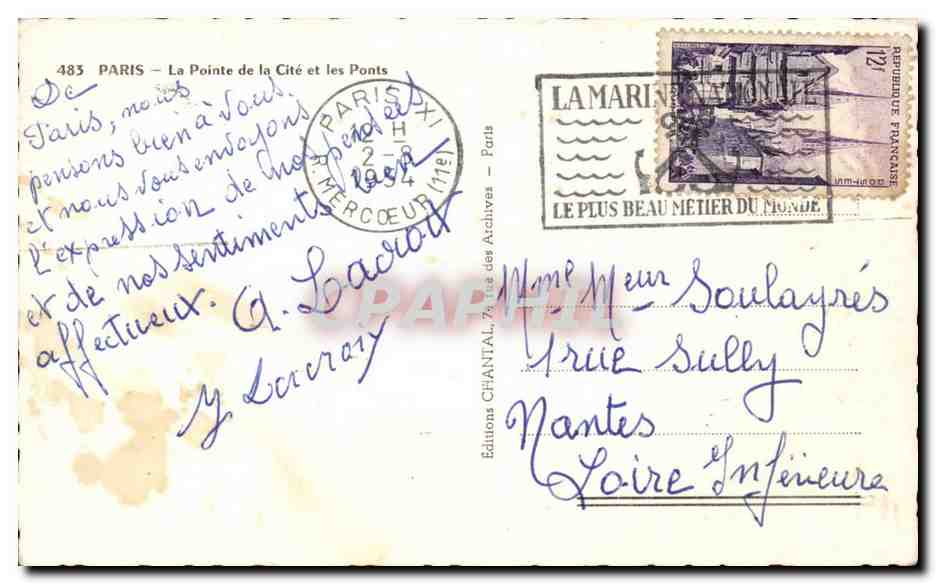 483 PARIS – La Pointe de la Cité et les Ponts
De
Paris, nous
pensons bien à vous,
et nous vous envoyons
l'expression de nos pensées
et de nos sentiments bien
affectueux. A. Lacroix
Y Lacroix
PARIS XI
12 H
2-8
1954
R. MERCŒUR (11e)
LA MARINE NATIONALE
LE PLUS BEAU MÉTIER DU MONDE
12f
REPUBLIQUE FRANÇAISE
Editions CHANTAL, 74 rue des Archives - Paris
CPAPHIL
Mme Meur Soulayrés
1 rue Sully
Nantes
Loire Inférieure